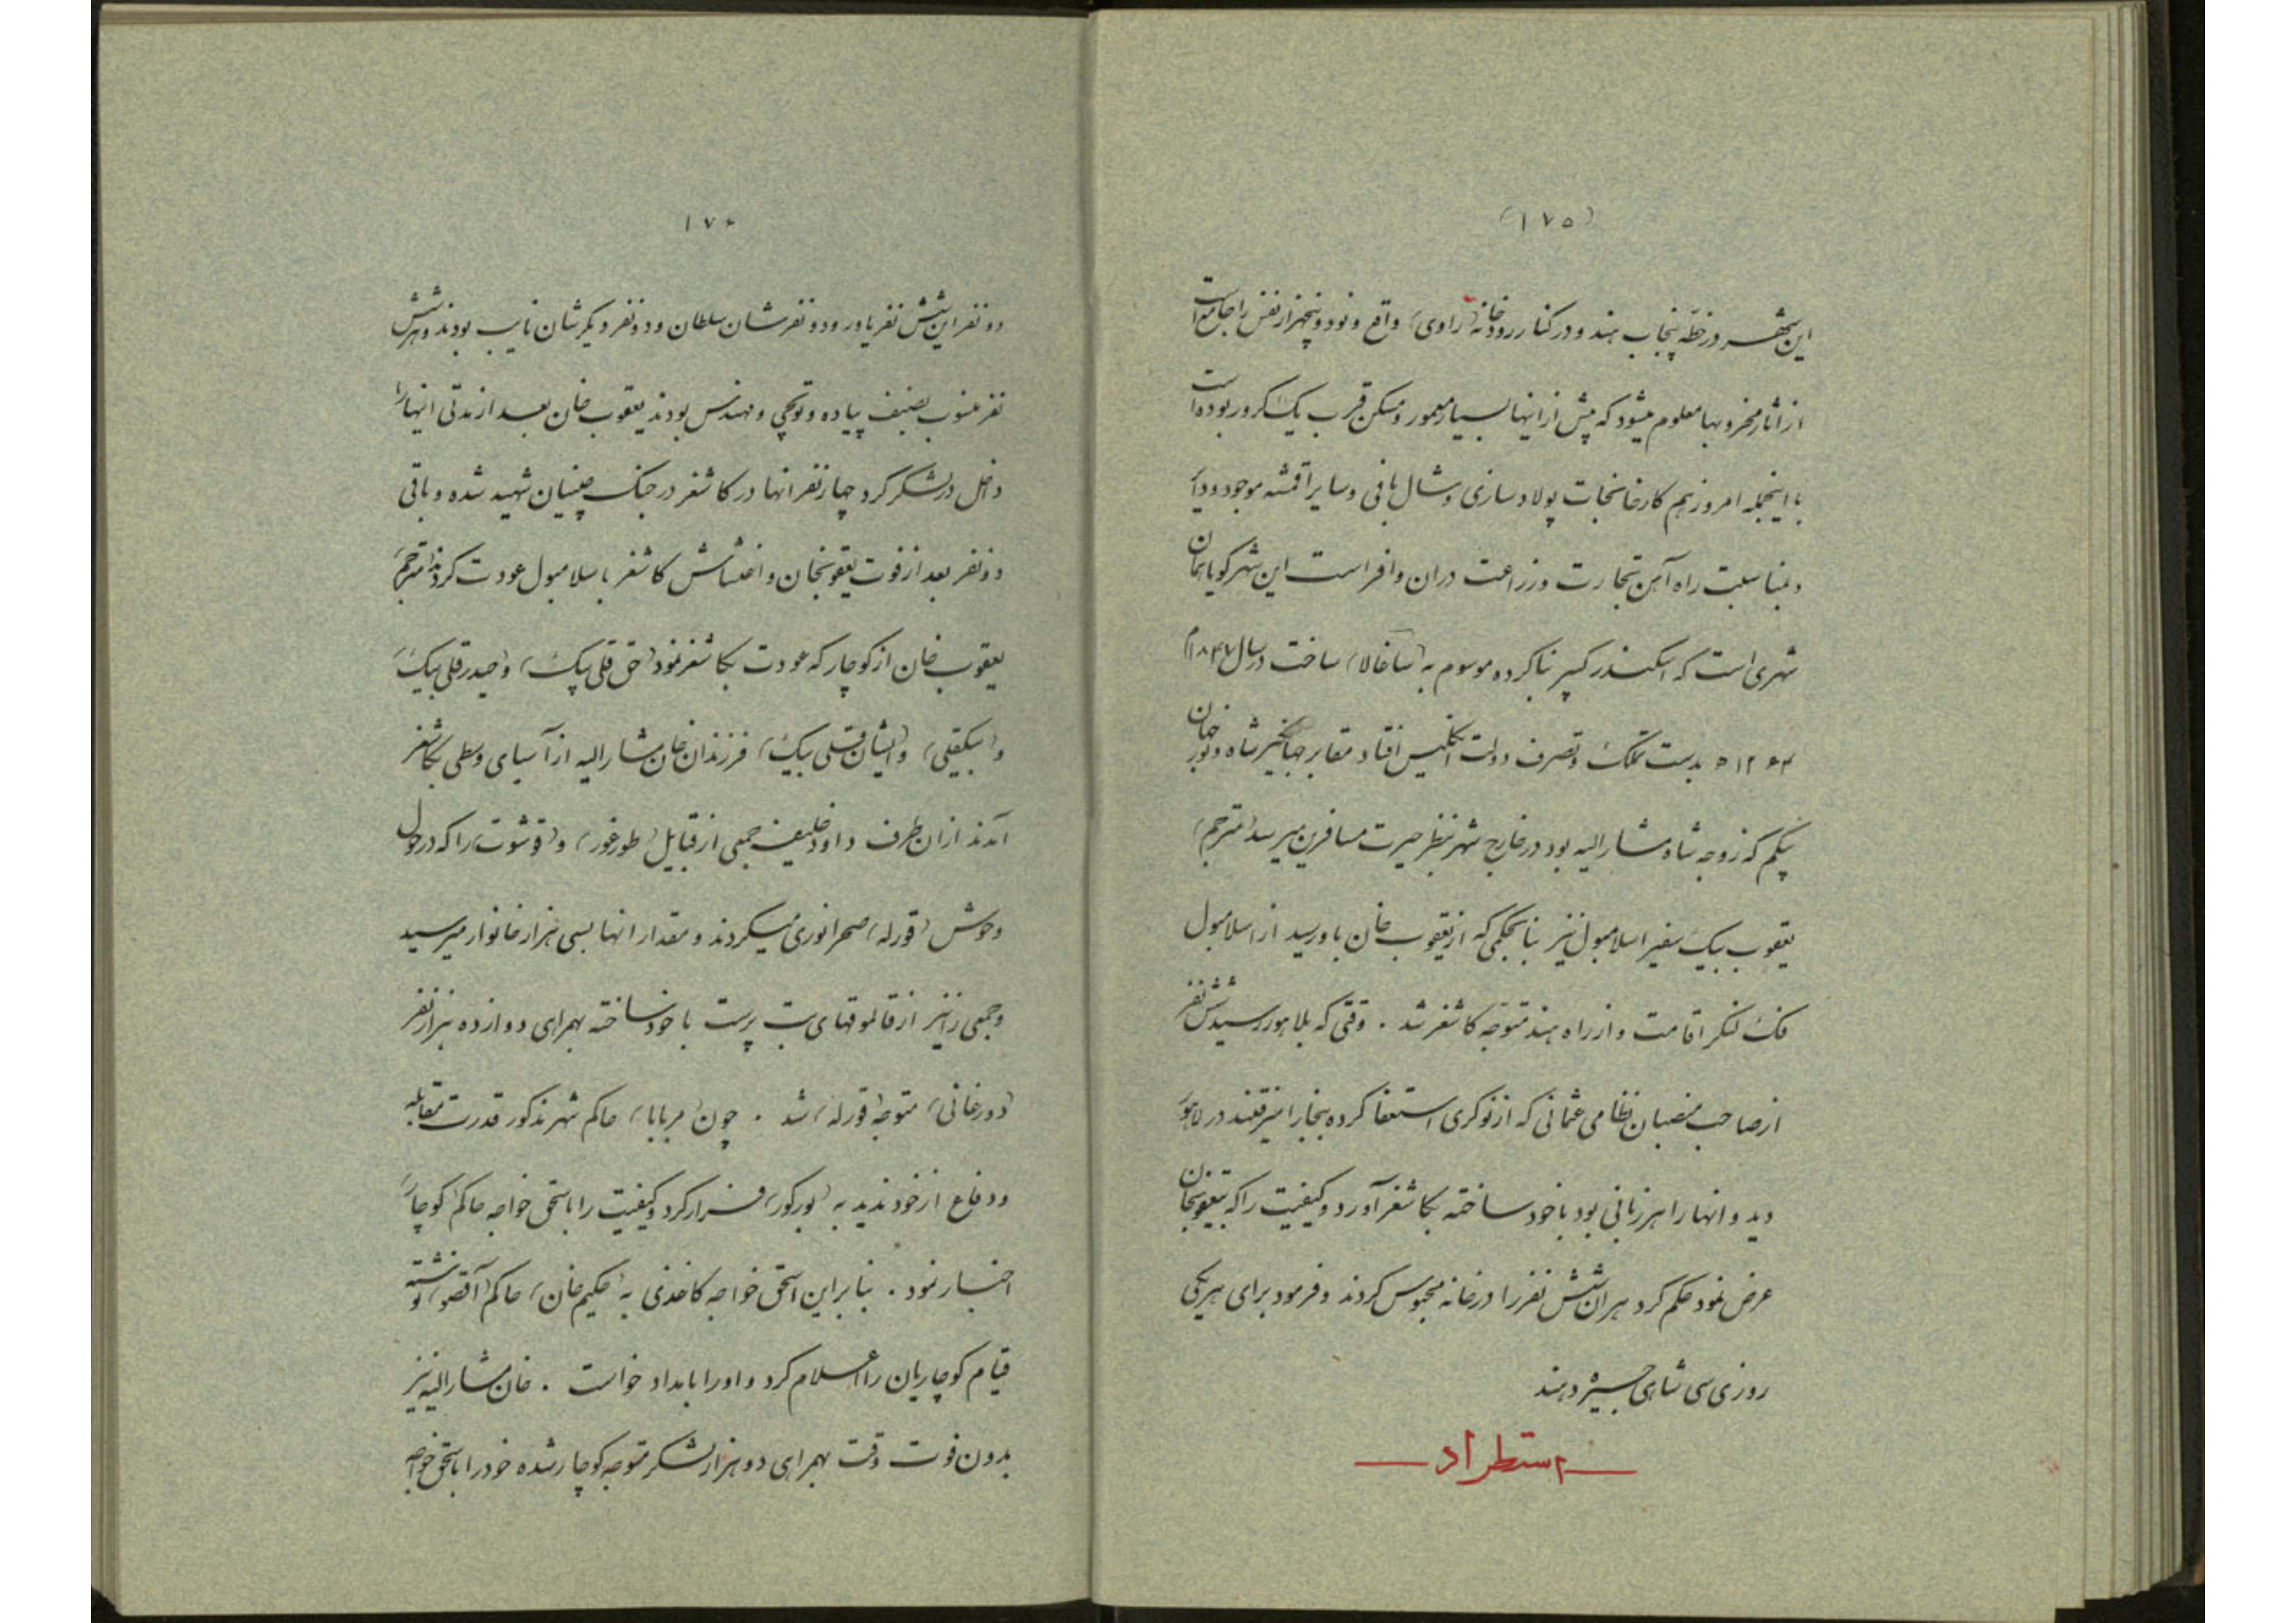 (۱۷۵)
این شهر در خطّه پنجاب هند و در کنار رودخانه (راوی) واقع و نود و پنجهزار نفس را جامع است
از آثار مخروبها معلوم میشود که پیش از اینها بسیار معمور و مسکن قریب یک کرور بوده است
با اینجمله امروز هم کارخانجات پولاد سازی و شال بافی و سایر اقمشه موجود و دائر
و بمناسبت راه آهن تجارت و زراعت دران وافر است این شهر گویا همان
شهری است که اسکندر کبیر بنا کرده موسوم به (ساغالا) ساخت در سال ۱۸۴۶م
۱۲۶۳ه بدست تملک و تصرف دولت انگلیس افتاد مقابر جهانگیر شاه و نور جهان
بیگم که زوجه شاه مشار الیه بود در خارج شهر بنظر حیرت مسافرین میرسد (مترجم)
یعقوب بیک سفیر اسلامبول نیز بنا بحکمی که از یعقوب خان باو رسید از اسلامبول
فک لنگر اقامت و از راه هند متوجه کاشغر شد . وقتی که بلاهور رسید شش نفر
از صاحب منصبان نظامی عثمانی که از نوکری استعفا کرده ببخارا میرفتند در لاهور
دید و انها را بهر زبانی بود با خود ساخته بکاشغر آورد و کیفیت را که بیعقوبخان
عرض نمود حکم کرد هر ان شش نفر را در خانه محبوس کردند و فرمود برای هر یکی
روزی سی شاهی جیره دهند
استطراد
۱۷۶
دو نفر این شش نفر یاور و دو نفرشان سلطان و دو نفر دیگرشان نایب بودند و هر شش
نفر منسوب بصنف پیاده و توپچی و مهندس بودند یعقوب خان بعد از مدتی اینها را
داخل در لشکر کرد چهار نفر انها در کاشغر در جنگ چینیان شهید شده و باقی
دو نفر بعد از فوت یعقوبخان و اغتشاش کاشغر باسلامبول عودت کردند (مترجم)
یعقوب خان از کوچار که عودت بکاشغر نمود (حق قلی بیک) و (حیدر قلی بیک)
و (بیکقلی) و (ایشان قلی بیک) فرزندان خان مشار الیه از آسیای وسطی بکاشغر
آمدند از ان طرف داود خلیفه جمعی از قبایل (طورغور) و (قوشوت) را که در حول
و حوش (قورله) صحرانوردی میکردند و مقدار انها بسی هزار خانوار میرسید
و جمعی را نیز از قالموقهای بت پرست با خود ساخته بهمراهی دوازده هزار نفر
(دورغانی) متوجه (قورله) شد . چون (مربابا) حاکم شهر مذکور قدرت مقابله
و دفاع از خود ندید به (بورکور) فرار کرد و کیفیت را باسحق خواجه حاکم (کوچار)
اخبار نمود . بنا براین اسحق خواجه کاغذی به (حکیم خان) حاکم (آقصو) نوشته
قیام کوچاریان را اعلام کرد و او را بامداد خواست . خان مشار الیه نیز
بدون فوت وقت بهمراهی دو هزار لشکر متوجه کوچار شده خود را باسحق خواجه